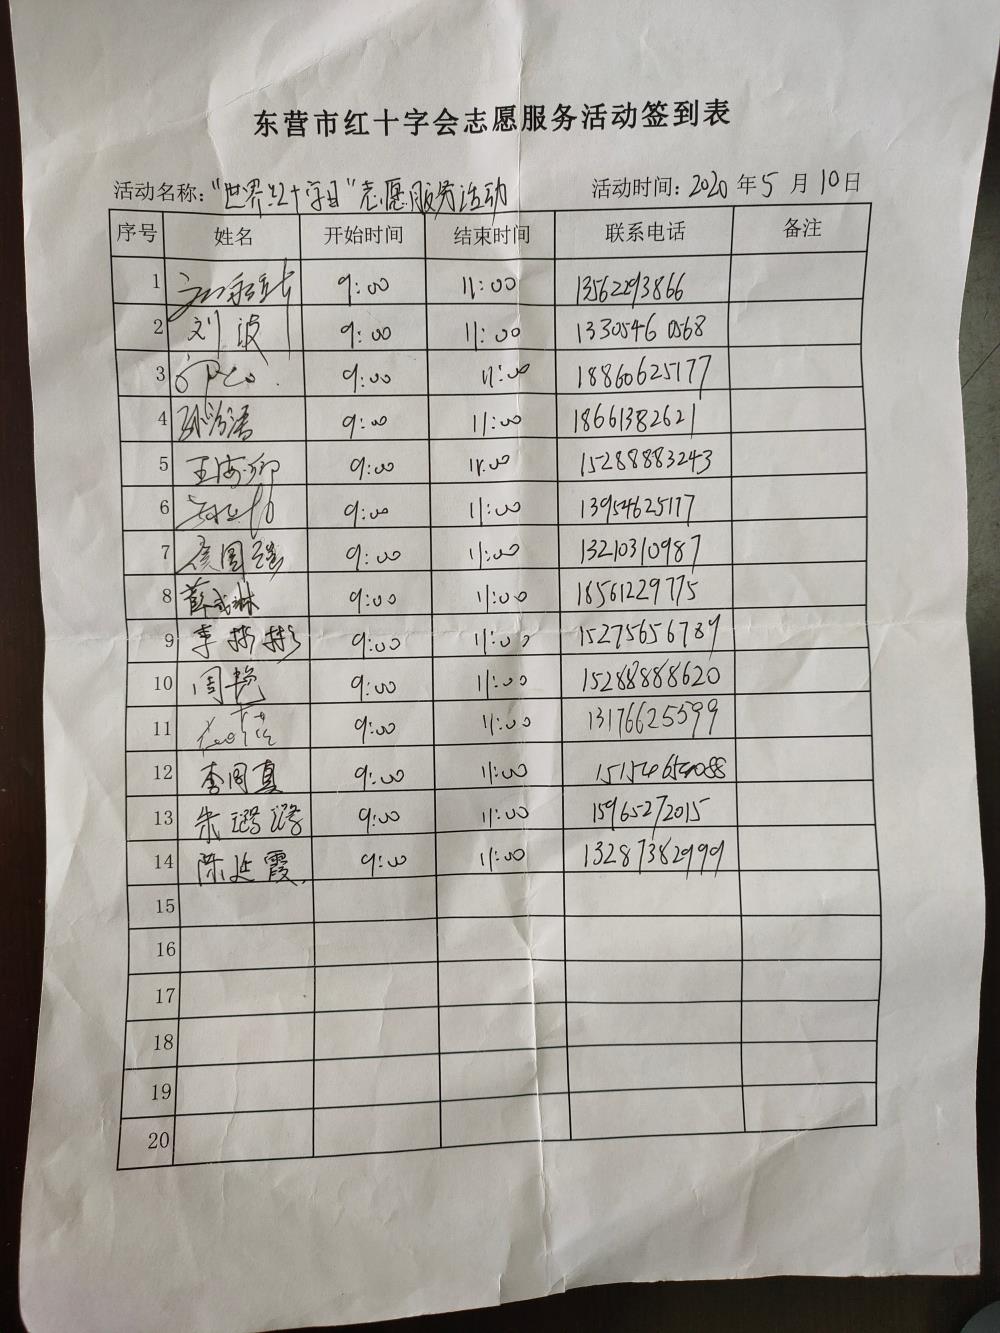 东营市红十字会志愿服务活动签到表
活动名称："世界红十字日"志愿服务活动 活动时间：2020 年 5 月 10 日
序号 姓名 开始时间 结束时间 联系电话 备注
1 9:00 11:00 13562293866
2 刘波 9:00 11:00 13305460568
3 9:00 11:00 18860625177
4 9:00 11:00 18661382621
5 王海卿 9:00 11:00 15288883243
6 9:00 11:00 13954625117
7 9:00 11:00 13210310987
8 薛成琳 9:00 11:00 18561229775
9 李彬彬 9:00 11:00 15275656789
10 周艳 9:00 11:00 15288888620
11 9:00 11:00 13176625599
12 李国真 9:00 11:00
13 朱璐璐 9:00 11:00 15965272015
14 陈延霞 9:00 11:00 13287382999
15
16
17
18
19
20